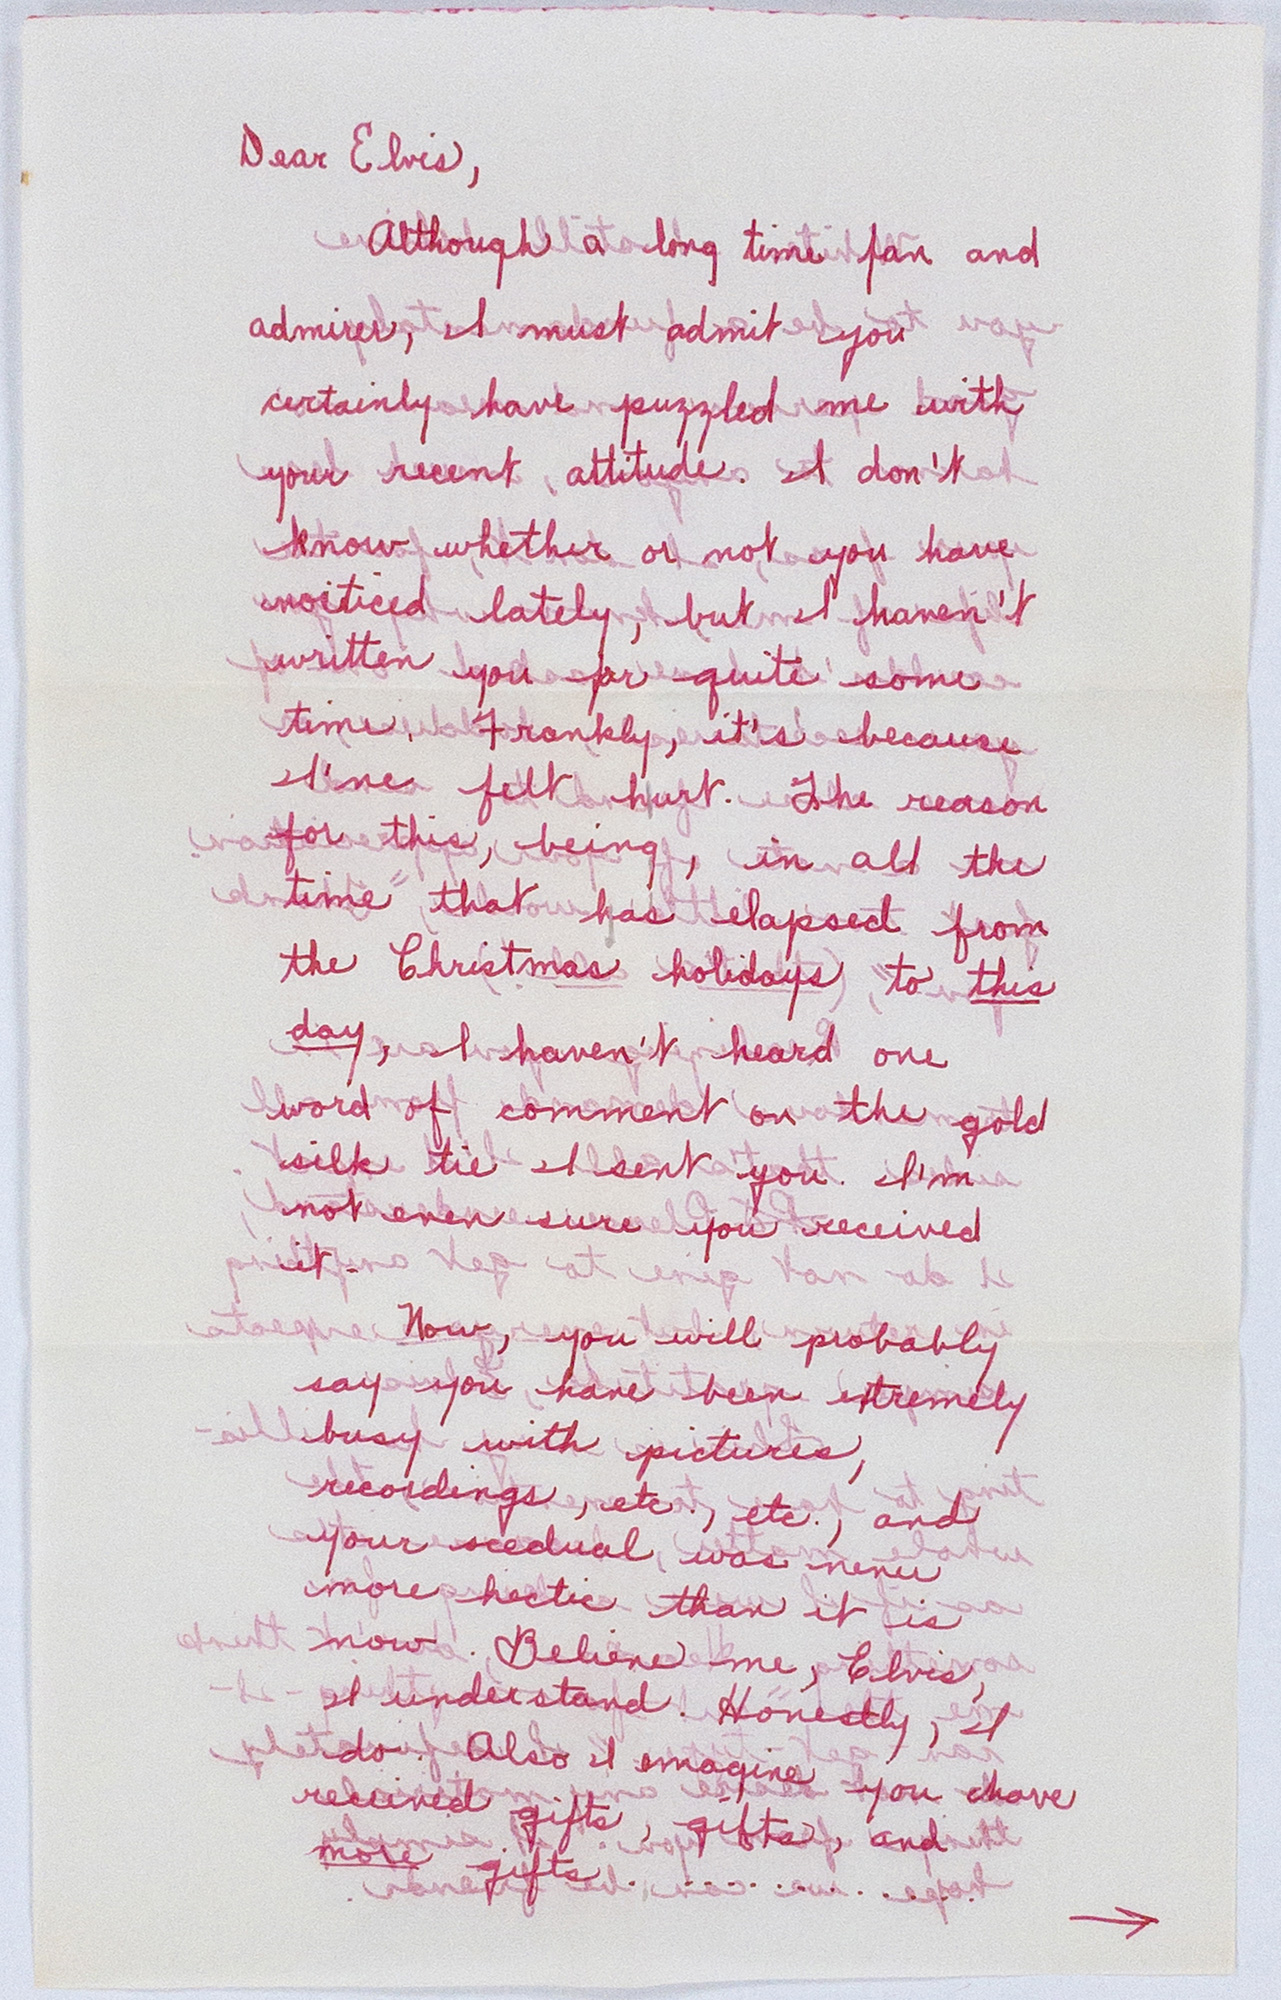 Dear Elvis,
Although a long time fan and
admirer, I must admit you
certainly have puzzled me with
your recent attitude. I don't
know whether or not you have
noiticed lately, but I haven't
written you for quite some
time. Frankly, it's because
I've felt hurt. The reason
for this, being, in all the
time that has elapsed from
the Christmas holidays, to this
day, I haven't heard one
word of comment on the gold
silk tie I sent you. I'm
not even sure you received
it.
Now, you will probably
say you have been extremely
busy with pictures,
recordings, etc., etc., and
your scedual was never
more hectic than it is
now. Believe me, Elvis,
I understand. Honestly, I
do. Also I emagine you have
received gifts, gifts, and
more gifts..............
→